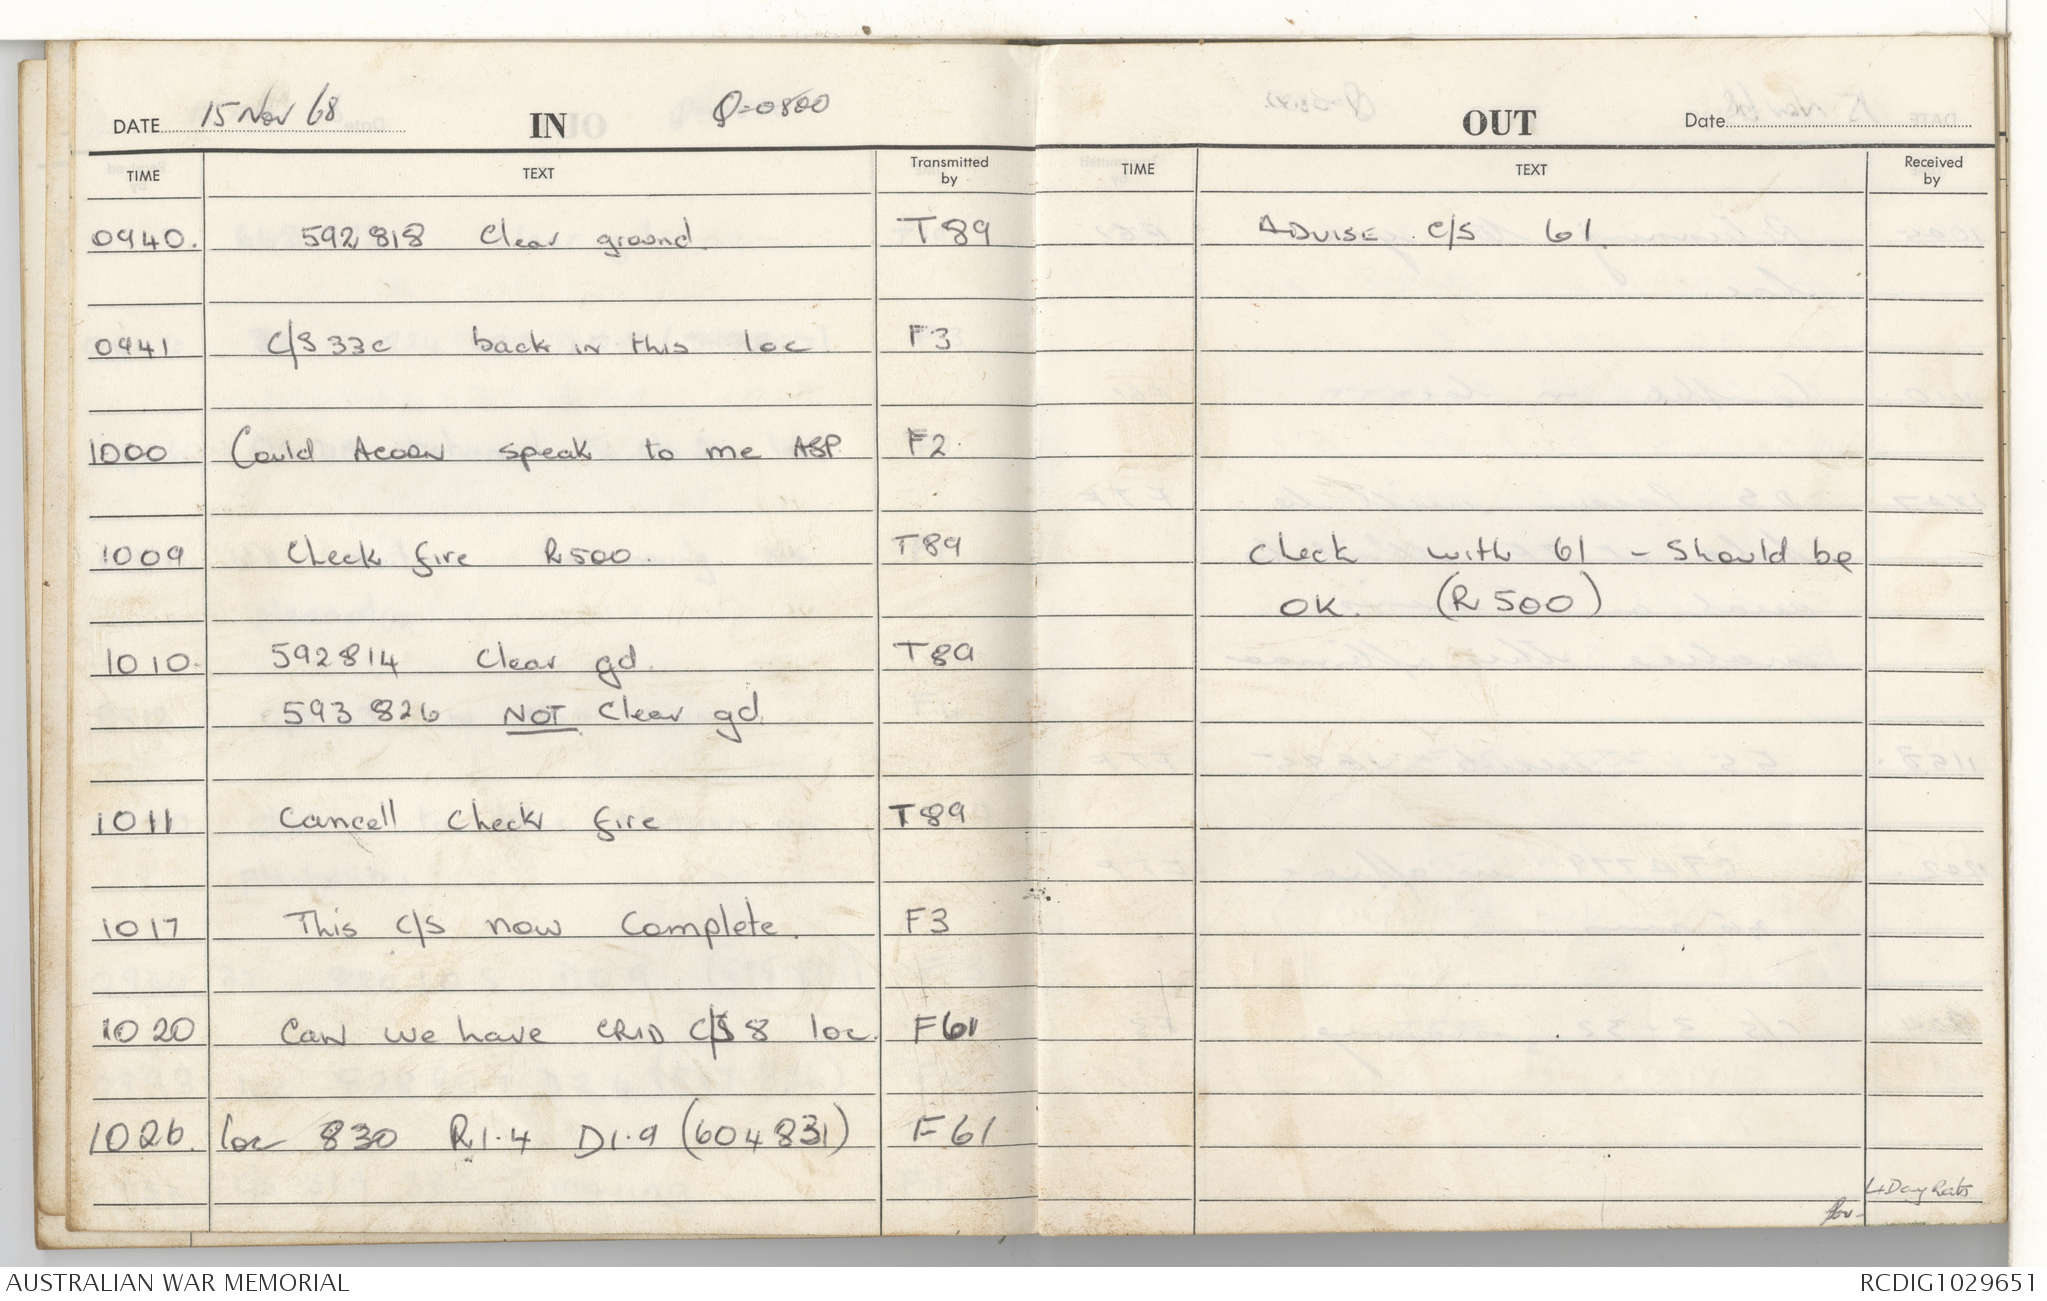 DATE 15 Nov 68 IN Q=0800
OUT Date
TIME TEXT Transmitted by TIME TEXT Received by
0940. 592818 Clear ground. T89 ADVISE C/S 61.
0941 C/S 33c back in this loc F3
1000 Could Acorn speak to me ASP. F2.
1009 Check fire R500. T89 Check with 61 - Should be
OK. (R 500)
1010. 592814 Clear gd. T89
593826 NOT Clear gd.
1011 Cancell Check fire T89
1017 This C/S now Complete. F3
1020 Can we have GRID C/S 8 loc. F61
1026. loc 830 R1.4 D1.9 (604831) F61
4 Day Rats
for -
AUSTRALIAN WAR MEMORIAL RCDIG1029651